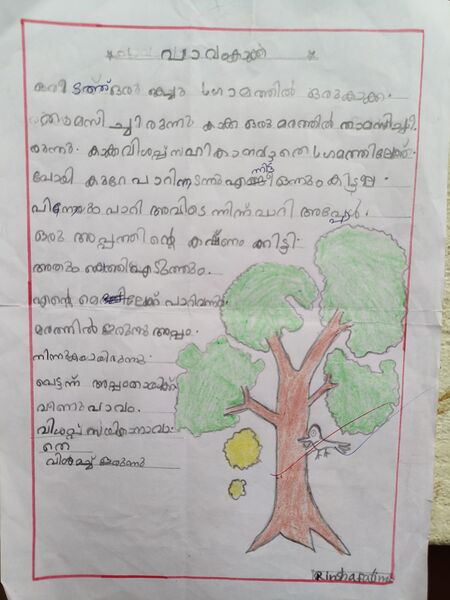 പാവംകാക്ക
ഒരിടത്ത് ഒരു കൊച്ചു ഗ്രാമത്തിൽ ഒരുകാക്ക.
താമസിച്ചിരുന്നു കാക്ക ഒരു മരത്തിൽ താമസിച്ചി.
രുന്നു. കാക്ക വിശപ്പ് സഹിക്കാനാവാതെ ഗ്രമത്തിലേക്ക്
പോയി കുറേ പാറി നടന്നു എന്നിട്ട് ഒന്നും കിട്ടീല്ല
പിന്നേയും പാറി അവിടെ നിന്ന് പാറി അപ്പോൾ.
ഒരു അപ്പത്തിന്റെ കഷ്ണം കിട്ടി
അതും കൊത്തിഎടുത്തും.
എന്റെ പാറിവന്നു
മരത്തിൽ ഇരുന്നു അപ്പം.
തിന്നുകയായിരുന്നു
പെട്ടന്ന് അപ്പംതായേക്ക്
വീണു പാവം.
വിശപ്പ് സഹിക്കാനാവാ
തെ
വിശമിച്ച് ഇരുന്നു
Rinshafathima